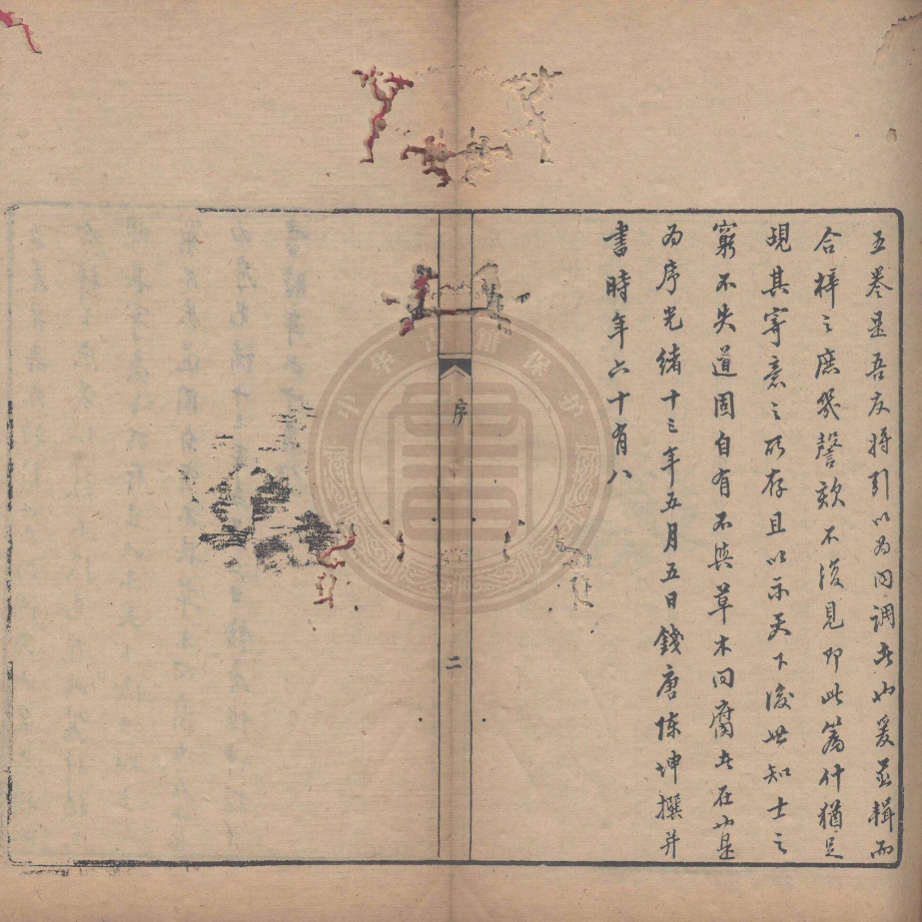 五卷是吾友將引以為同調者也爰並輯而
合梓之庶幾謦欬不復見即此篇什猶足
覘其寄意之所存且以示天下後世知士之
窮不失道固自有不與草木同腐者在也是
為序光緒十三年五月五日錢唐陳坤撰并
書時年六十有八
序
二